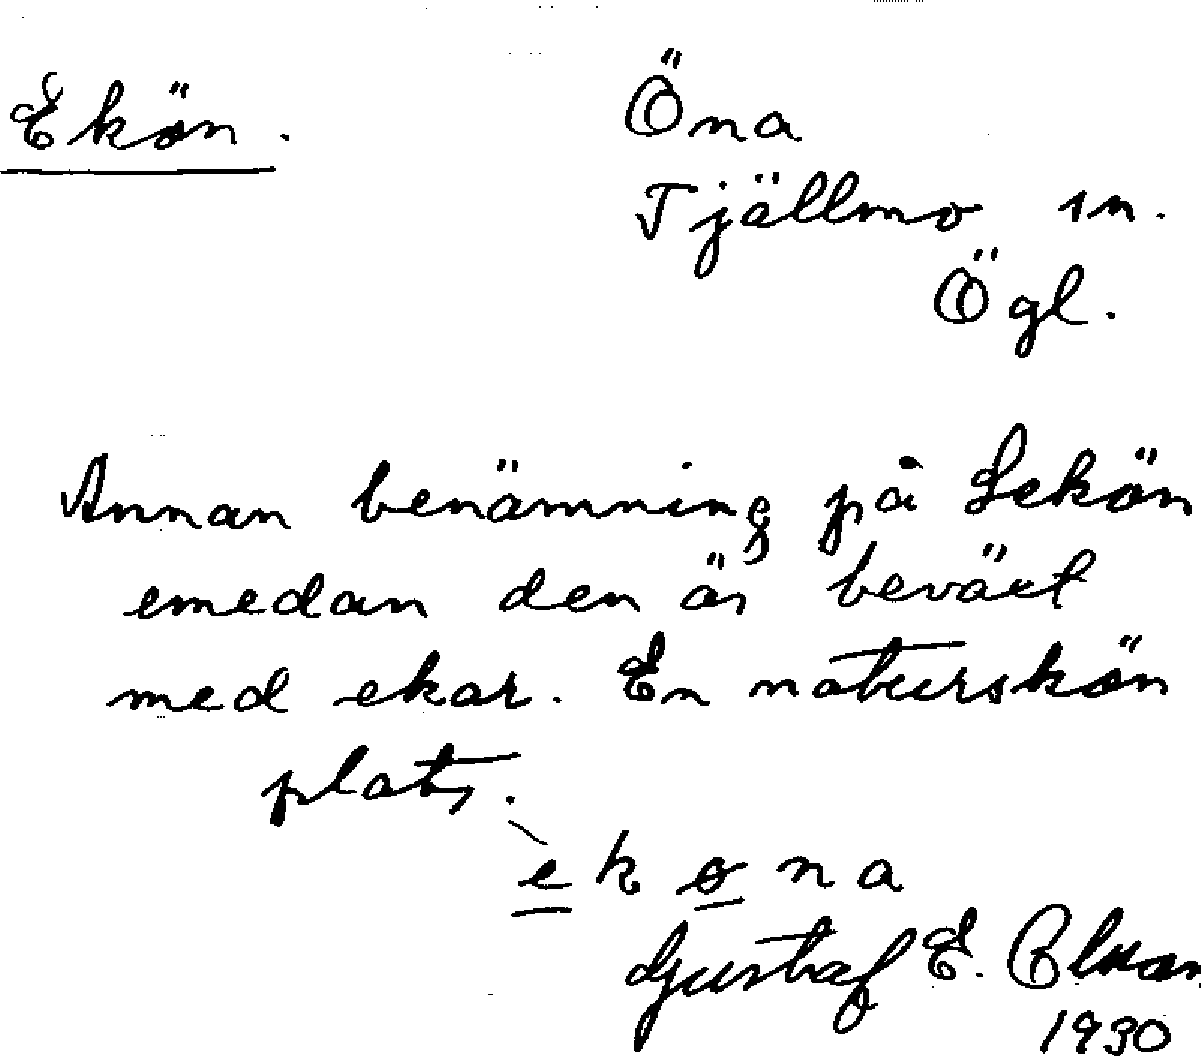 Ekön.
Öna
Tjällmo sn.
Ögl.
Annan benämning på Lekön
emedan den är beväxt
med ekar. En naturskön
plats.
e k ø n a
Gustaf E.
1930